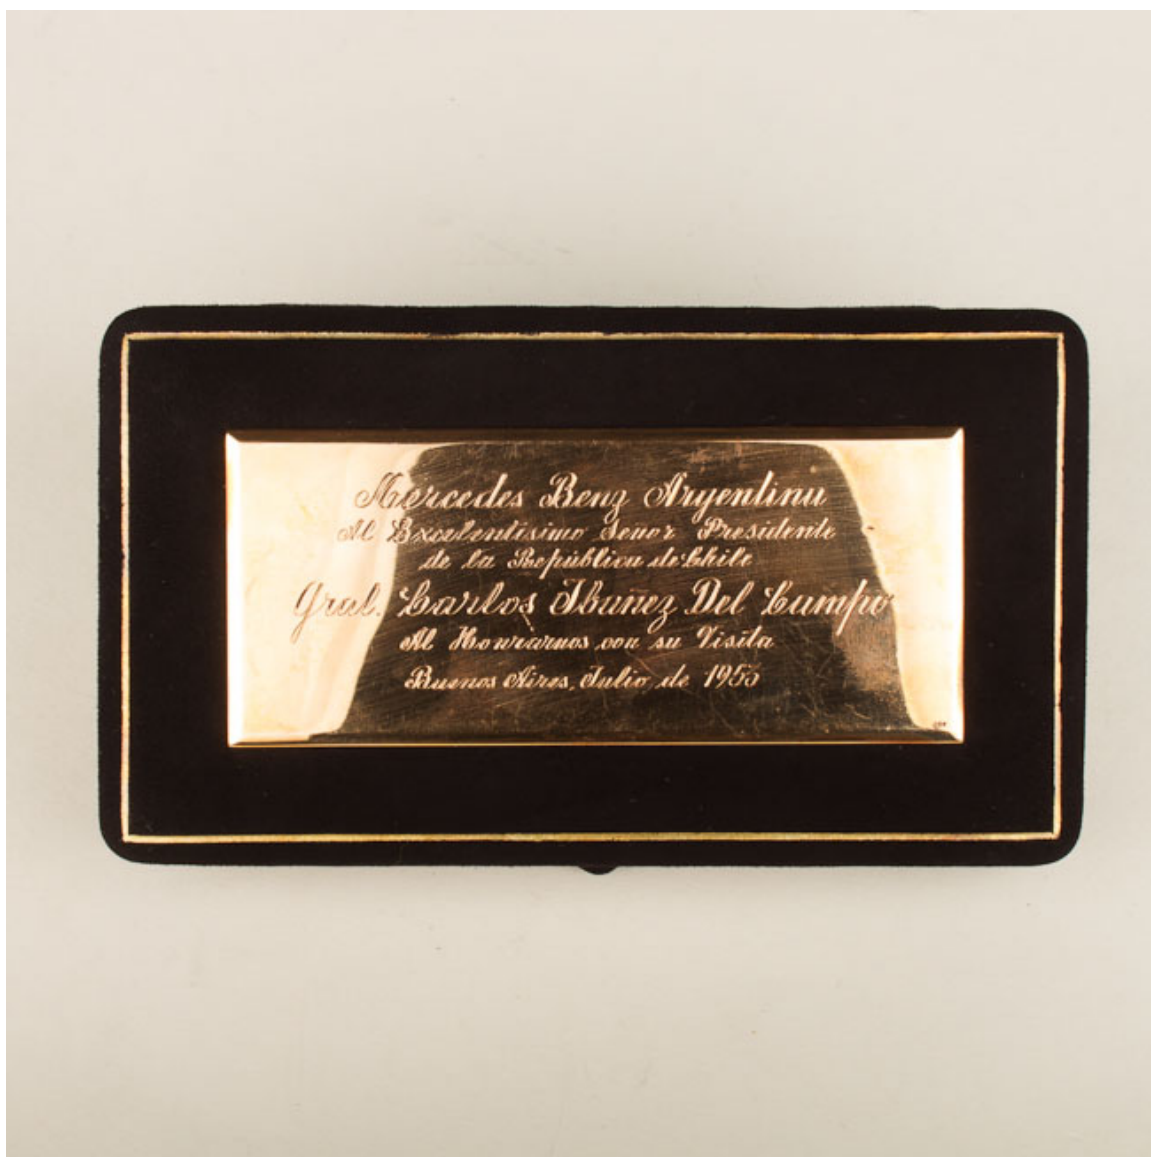 Mercedes Benz Argentina
Al Excelentisimo Señor Presidente
de la República de Chile
Gral. Carlos Ibañez Del Campo
Al Honrarnos con su Visita
Buenos Aires, Julio, de 1953